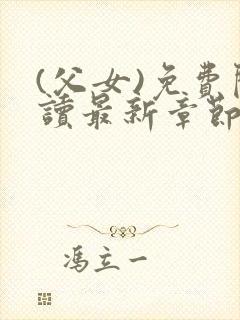 (父女)免費
讀最新章節
馮立一